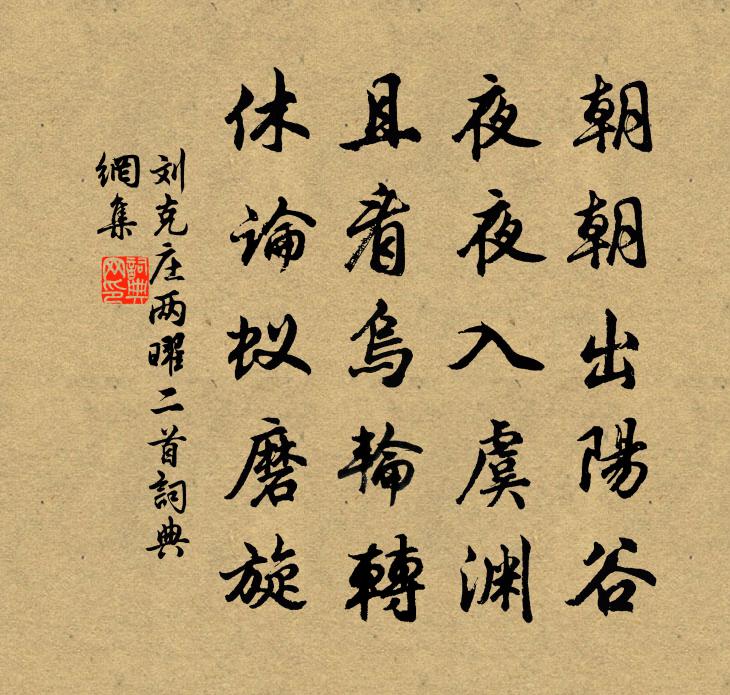 朝朝出陽谷
夜夜入虞渊
且看烏輪轉
休論蚁磨旋
刘克庄两曜二首詞典
網集
詞典
网印